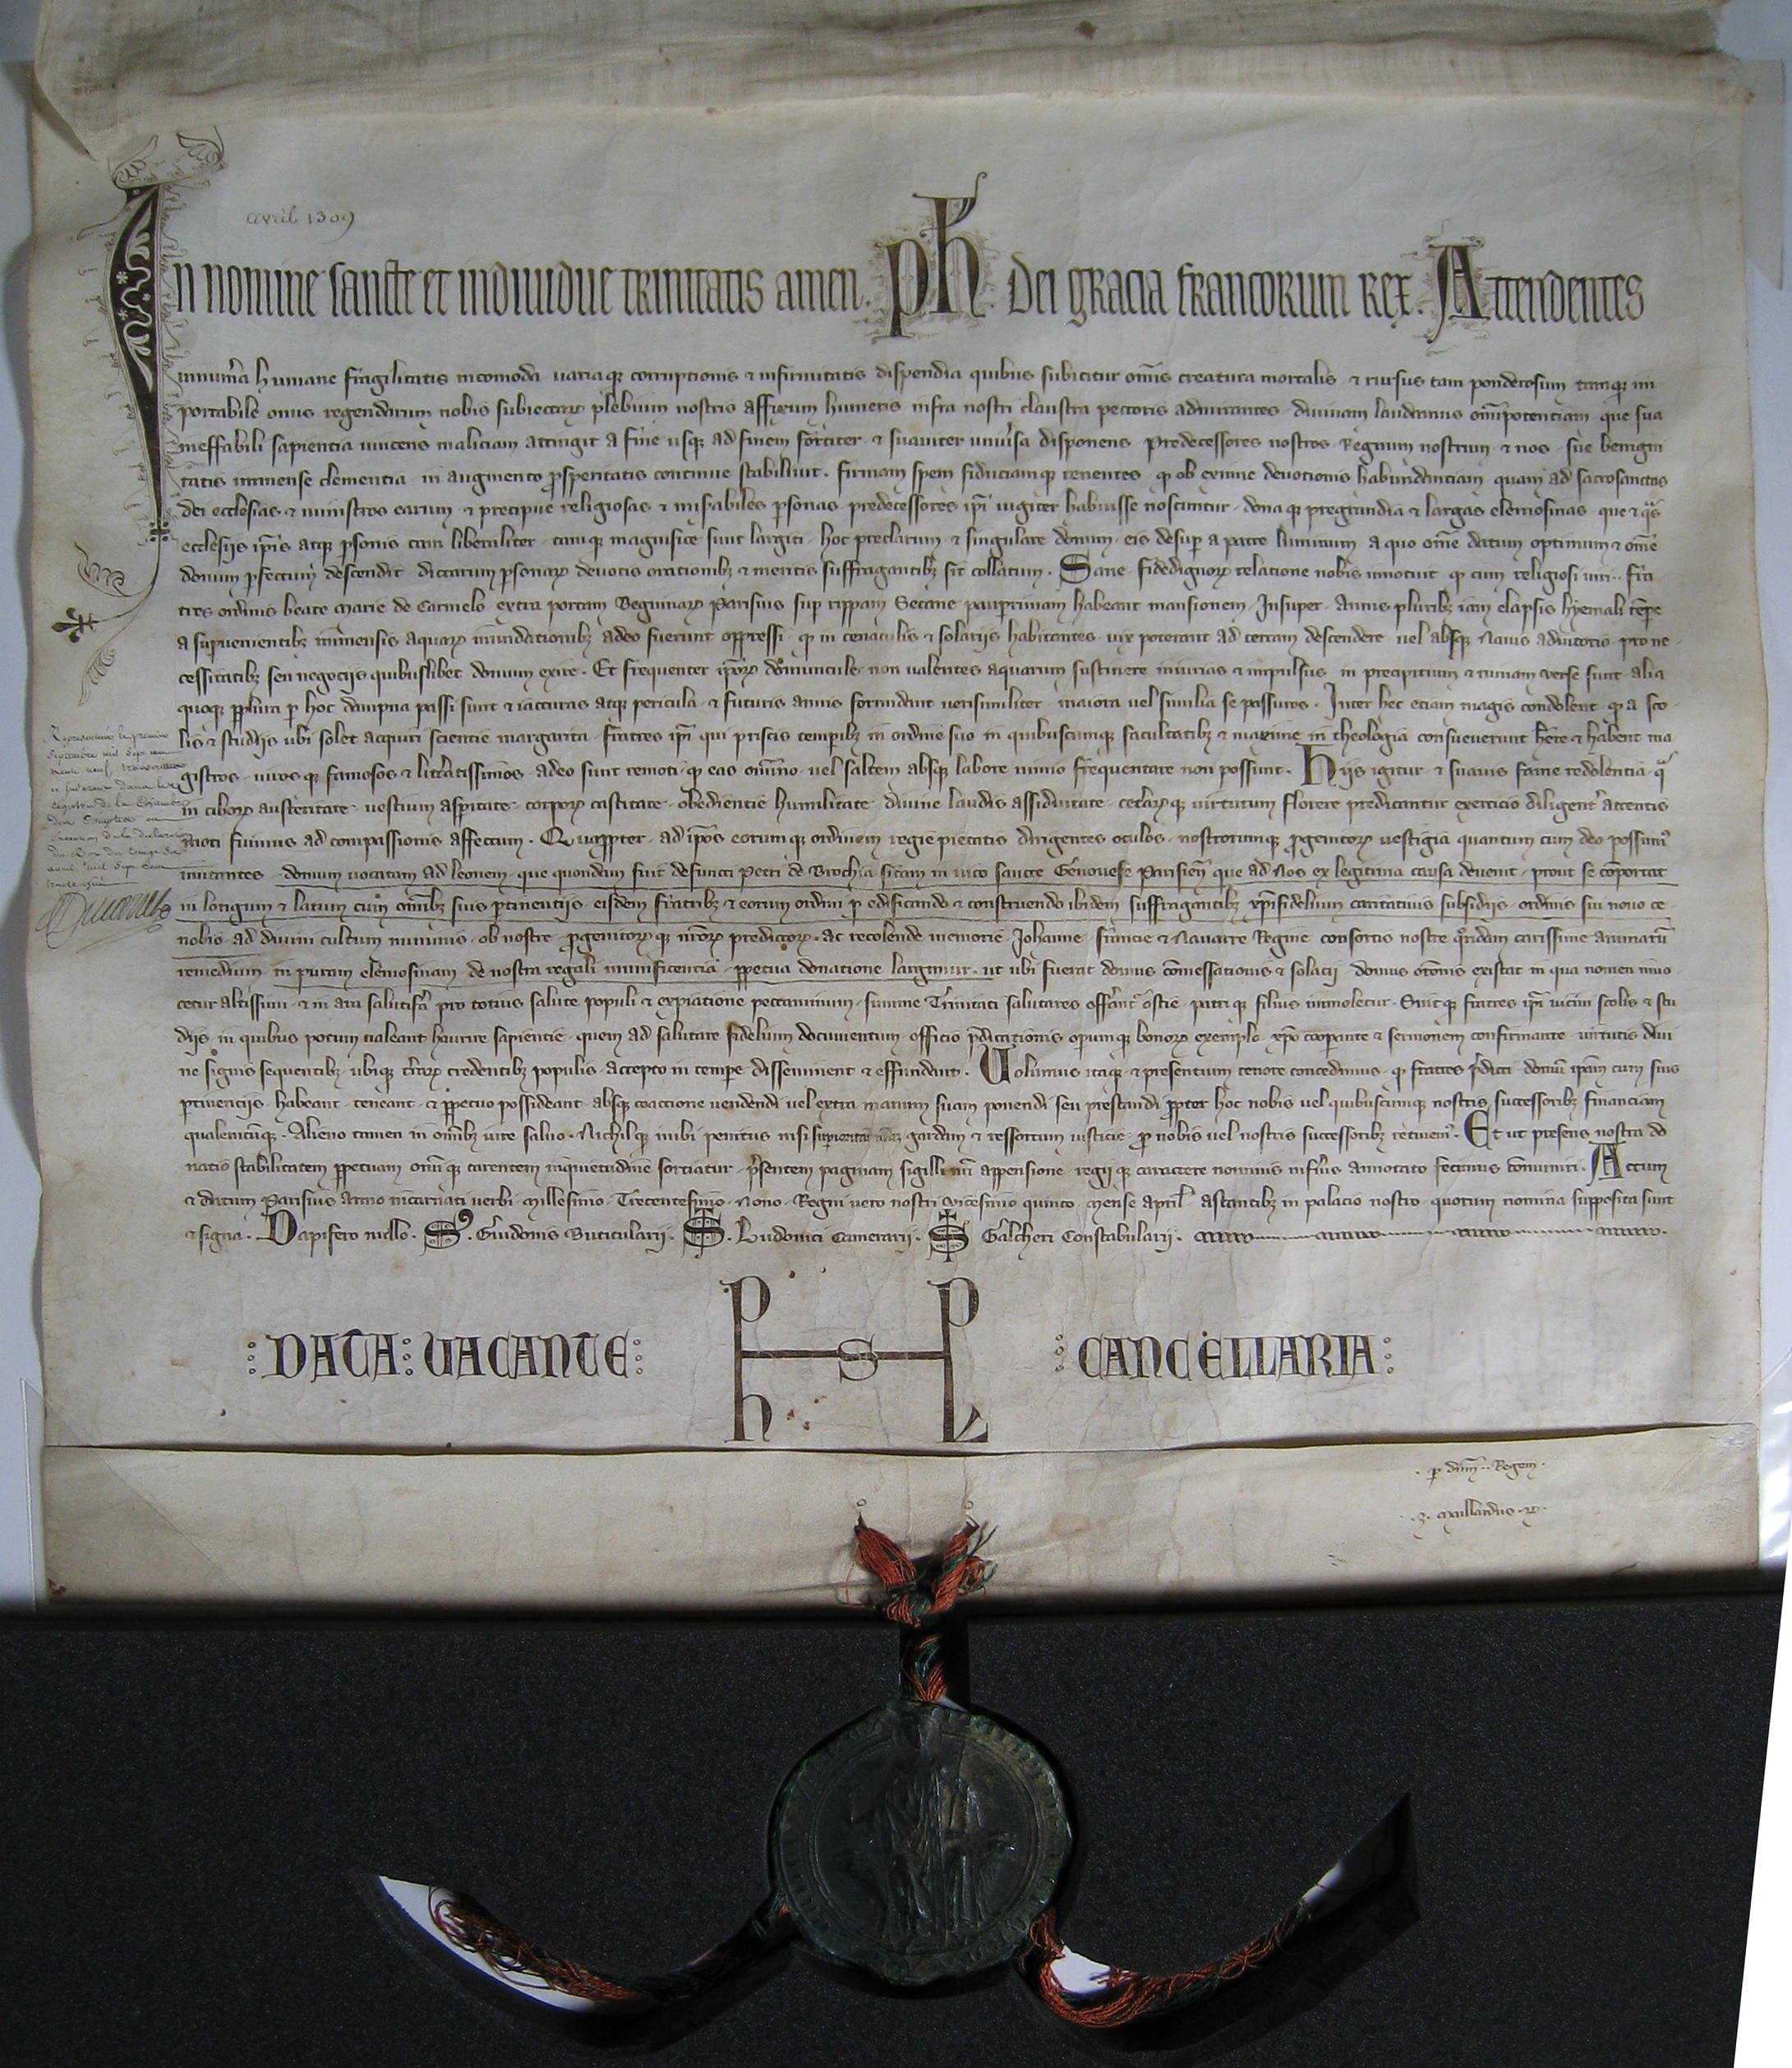 avril 1309
In nomine sancte et individue trinitatis amen. Ph. Dei gracia francorum rex. Attendentes
innum'a humane fragilitatis incomoda variaq; corruptionis & infirmitatis dispendia quibus subicitur om̄is creatura mortalis & rursus tam ponderosum tamq; im
portabile onus regendarum nobis subiectaꝝ plebium nostris affixum humeris infra nostri claustra pectoris admirantes divinam laudamus om̄ipotenciam que sua
ineffabili sapientia vincens maliciam attingit a fine usq; ad finem fortiter & suaviter univ'sa disponens predecessores nostros Regnum nostrum & nos sue benigni
tatis immense clementia in augmento ꝓsperitatis continue stabilivit. firmam spem fiduciamq; tenentes ꝙ ob eximie devotionis habundanciam quam ad sacrosanctas
dei ecclesias & ministros earum & precipue religiosas & mis'abiles ꝑsonas predecessores ip̄i iugiter habuisse noscuntur donaq; pregrandia & largas elemosinas que
ecclesiis ip̄is atq; ꝑsonis tam liberaliter tamq; magnifice sunt largiti hoc preclarum & singulare donum eis desuꝑ a patre luminum a quo om̄e datum optimum & om̄e
donum ꝑfectum descendit dictarum ꝑsonaꝝ devotis orationibꝫ & meritis suffragantibꝫ sit collatum. Sane fidedignoꝝ relatione nobis innotuit ꝙ cum religiosi viri .. fra
tres ordinis beate Marie de Carmelo extra portam Beguinaꝝ Parisius suꝑ rippam Secane pauꝑrimam habeant mansionem Insuper Annis pluribꝫ iam elapsis hyemali tēꝑe
a supvenientibꝫ immensis aquaꝝ inundationibꝫ adeo fuerunt oppressi ꝙ in cenaculis & solariis habitantes vix poterant ad terram descendere vel absq; Navis adiutorio pro ne
cessitatibꝫ seu negociis quibuslibet domum exire. Et frequenter ip̄oꝝ domuncule non valentes aquarum sustinere iniurias & impulsus in precipitium & ruinam verse sunt alia
quoq; ꝑplura ꝑ hoc dampna passi sunt & iacturas atq; pericula & futuris annis formidant verisimiliter maiora vel similia se passuros. Inter hec etiam magis condolent ꝙ a sco
lis & studiis ubi solet acquiri scientie margarita fratres ip̄i qui priscis tempibꝫ in ordine suo in quibuscumq; facultatibꝫ & maxime in theologia consueverunt hēre & habent ma
gistros viros q; famosos & litt'atissimos adeo sunt remoti ꝙ eas om̄ino vel saltem absq; labore nimio frequentare non possunt. Hiis igitur & suavis fame redolentia
in ciboꝝ austeritate vestium asperitate corporꝫ castitate obedientie humilitate divine laudis assiduitate ceteraꝝq; virtutum florere predicantur exercicio diligent' attentis
moti fuimus ad compassionis affectum. Quapropter ad ip̄os eorumq; ordinem regie pietatis dirigentes oculos nostrorumq; ꝓgenitoꝝ vestigia quantum cum deo possum'
imitantes domum vocatam ad leonem que quondam fuit defuncti Petri de Brochia sitam in vico sancte Genovefe Parisien̄ que ad Nos ex legitima causa devenit prout se cōportat
in longum & latum cum om̄ibꝫ suis ꝑtinentiis eisdem fratribꝫ & eorum ordini ꝑ edificando & construendo ibidem suffragantibꝫ xp̄ifidelium caritativis subsidiis ordinis sui novo ce
nobio ad divini cultum numinis ob nostre ꝓgenitoꝝq; nr̄oꝝ predictoꝝ ac recolende memorie Johanne Francie & Navarre Regine consortis nostre quondam carissime animarū
remedium in puram elemosinam de nostra regali munificentia ꝑpetua donatione largimur ut ubi fuerat domus cōmessationis & solacii domus or̄onis existat in qua nomen invo
cetur altissimi & in ara salutif'a pro totius salute populi & expiatione peccaminum summe Trinitati salutares offerant' ostie patriq; filius immoletur. Sintq; fratres ip̄i vicini scolis & stu
diis in quibus potum valeant haurire sapientie quem ad salutare fidelium documentum officio p̄dicationis operumq; bonoꝝ exemplo xp̄o cooperante & sermonem confirmante virtutis divi
ne signis sequentibꝫ ubiq; t'raꝝ credentibꝫ populis accepto in tempe disseminent & effundant. Volumus itaq; & presentium tenore concedimus ꝙ fratres p̄dicti domū ip̄am cum suis
ꝑtinenciis habeant teneant & ꝑpetuo possideant absq; coaccione vendendi vel extra manum suam ponendi seu prestandi ꝓpter hoc nobis vel quibuscumq; nostris successoribꝫ financiam
qualemcūq;. Alieno tamen in om̄ibꝫ iure salvo. Nichilq; inibi penitus nisi gardam & ressortum iusticie ꝓ nobis vel nostris successoribꝫ retinem'. Et ut presens nostra do
natio stabilitatem ꝑpetuam om̄iq; carentem inquietudine sortiatur p̄sentem paginam sigilli nr̄i appensione regiiq; caractere nominis inferius annotato fecimus cōmuniri. Actum
& datum Parisius Anno incarnati verbi Millesimo Trecentesimo Nono Regni vero nostri vicesimo quinto mense april' astantibꝫ in palacio nostro quorum nomina supposita sunt
& signa. Dapifero nullo. S'. Guidonis Buticularii. S. Ludovici Camerarii. S Galcheri Constabularii.
DATA: VACANTE: CANCELLARIA:
P P
S
h L
ꝑ dn̄m .. Regem
Maillardus
Representée le premier
Septembre mil sept cent
trente neuf, transcritte
registres de la Chambre
des Comptes en
execution de la declaration
du Roy du
avril mil sept cent
trente